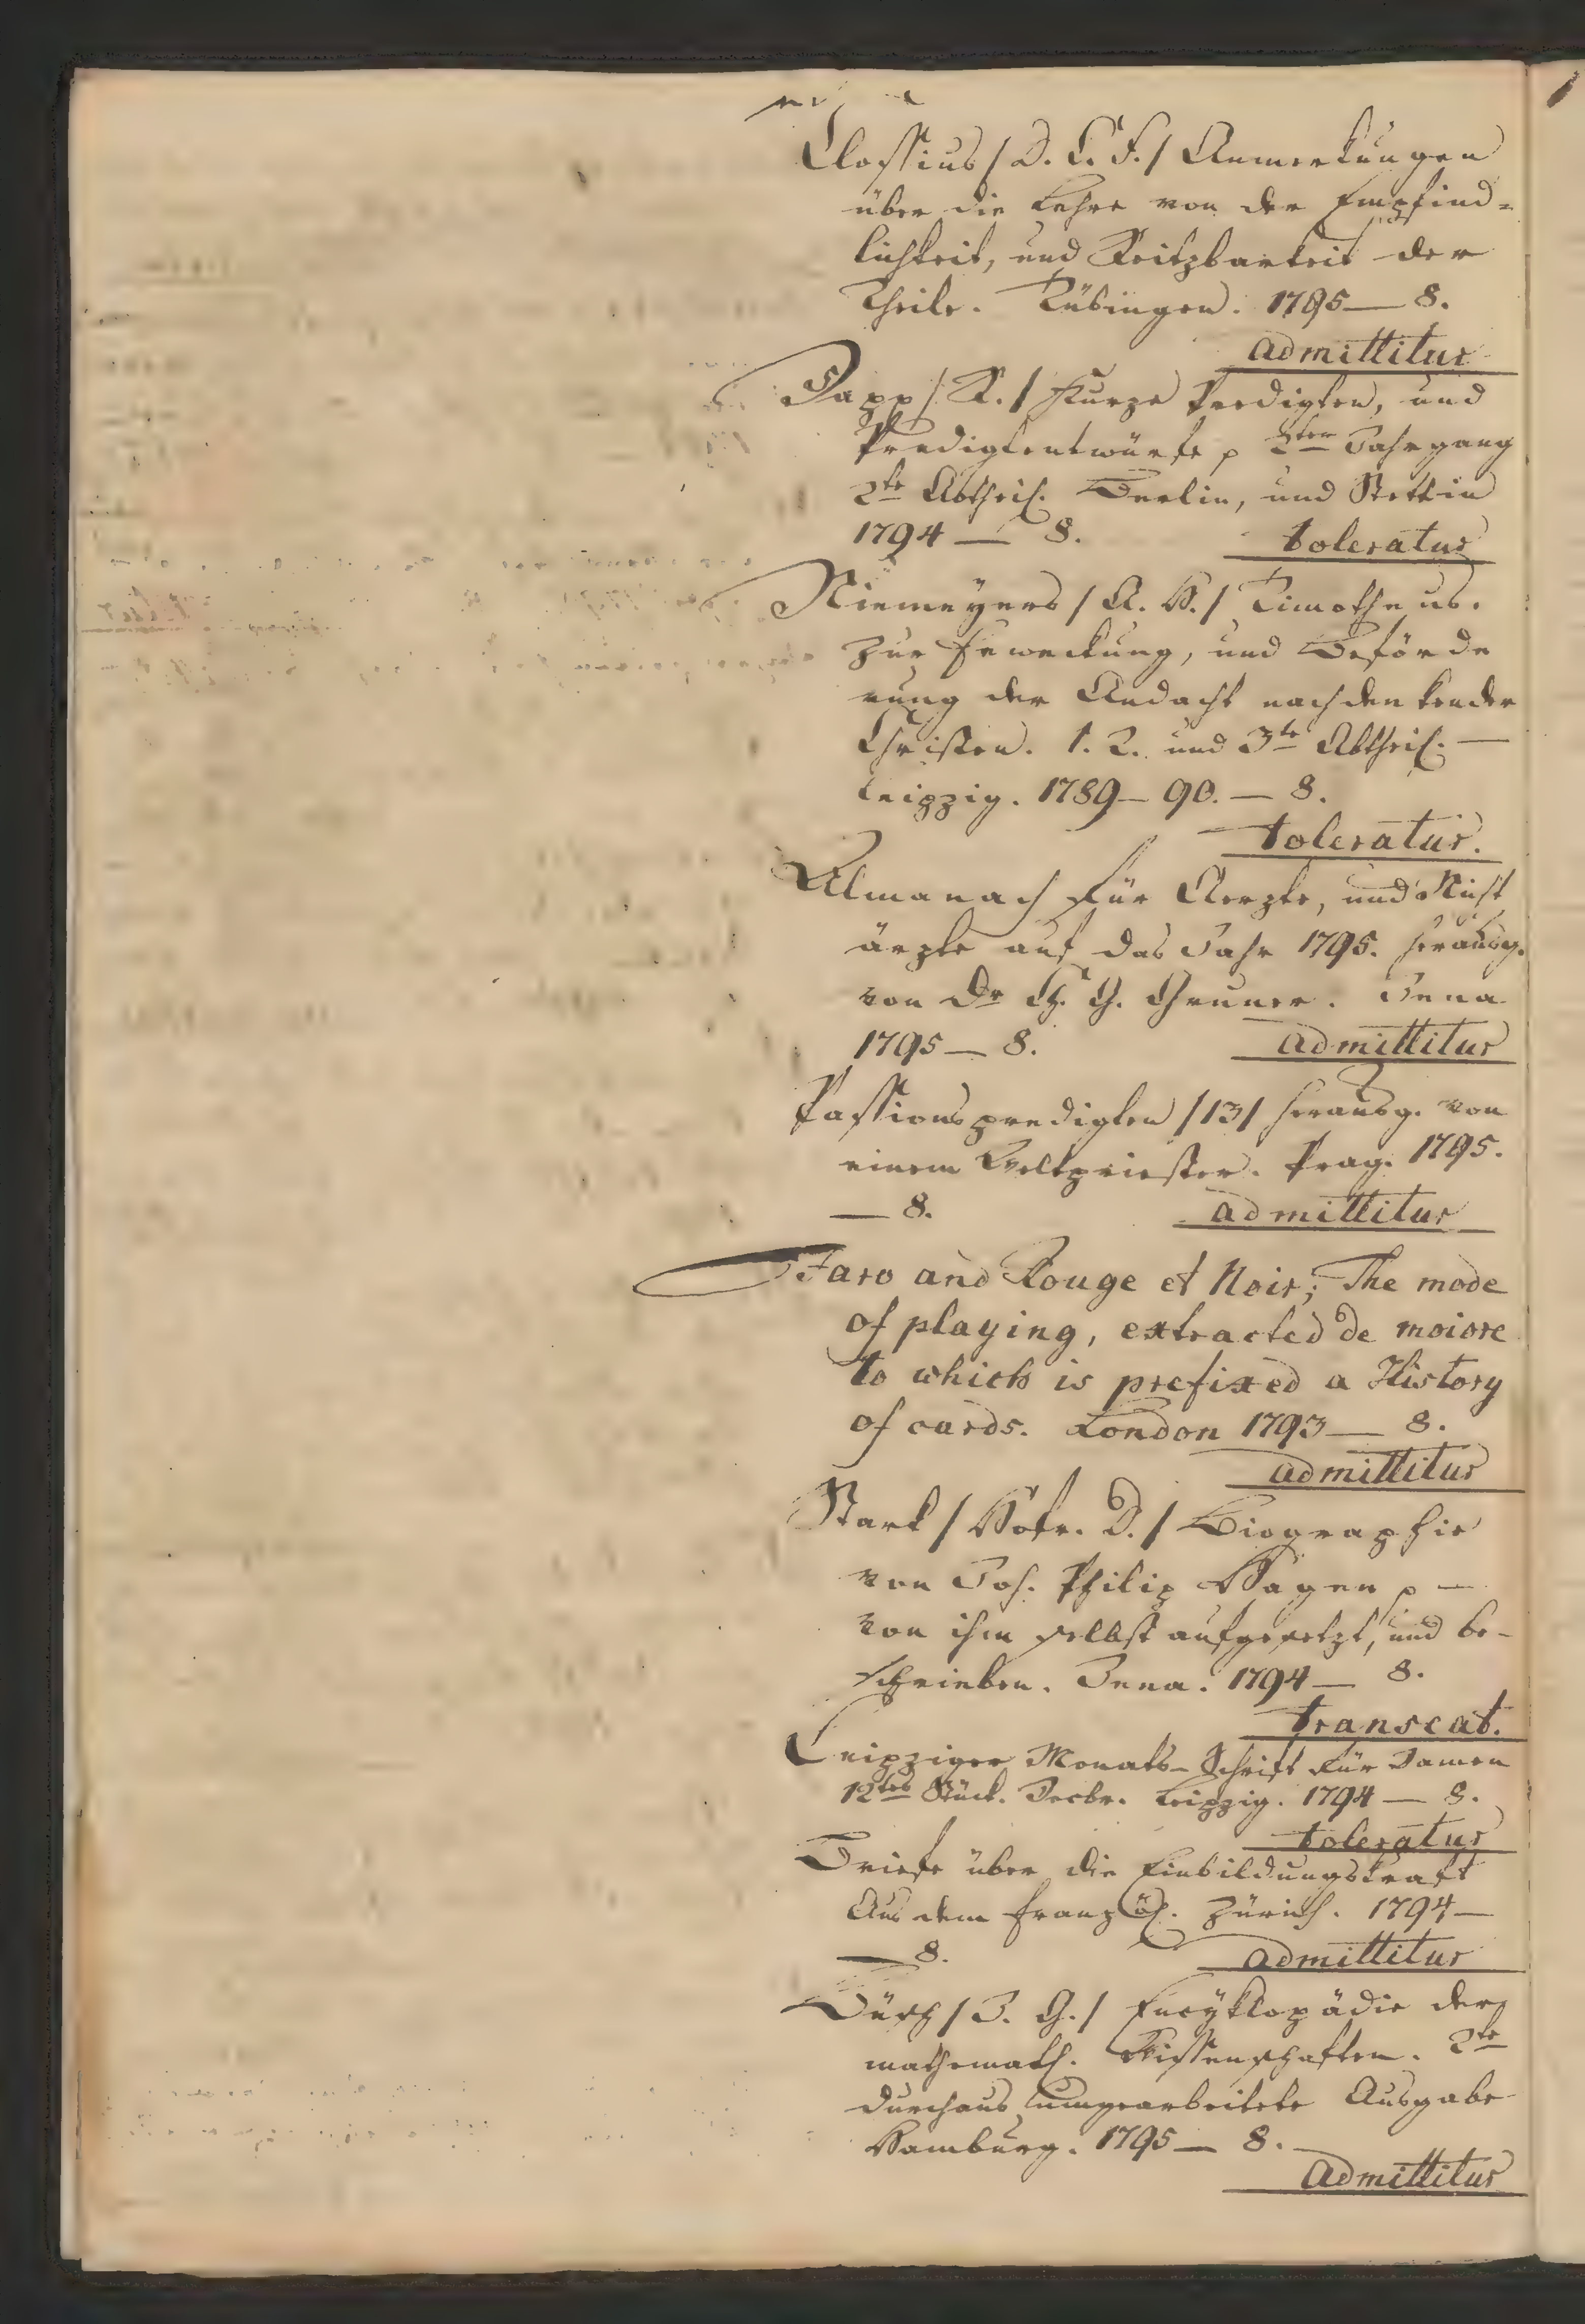 Clossius / D. C. F. / Anmerkungen
über die Lehre von der Empfind=
lichkeit, und Reitzbarkeit der
Theile. Tübingen. 1795 — 8.
admittitur
Dapp / R. / Kurze Predigten, und
Predigtentwürfe p 2ten Jahrgang
2te Abtheil. Berlin, und Stettin
1794 — 8.
toleratur
Niemeyers / A. H. / Timotheus.
zur Erweckung, und Beförde
rung der Andacht nachdenkender
Christen. 1. 2. und 3te Abtheil. —
Leipzig. 1789 — 90. — 8.
toleratur.
Almanach für Aerzte, und Nicht
ärzte auf das Jahr 1795. herausg.
von Dr Ch. G. Gruner. Jena
1795 — 8.
admittitur
Passionspredigten / 13 / herausg. von
einem Weltpriester. Prag. 1795.
— 8.
admittitur
Faro and Rouge et Noir; The mode
of playing, extracted de moiore
to which is prefixed a History
of cards. London 1793 — 8.
admittitur
Stark / Hofr. D. / Biographie
von Joh. Philip Hagen p —
von ihm selbst aufgesetzt, und be-
schrieben. Jena. 1794 — 8.
transeat.
Leipziger Monats-Schrift für Damen
12tes Stück. Decbr. Leipzig. 1794 — 8.
toleratur
Briefe über die Einbildungskraft
Aus dem Französ. Zürich. 1794 —
— 8.
admittitur
Büsch / J. G. / Encyklopädie der
mathemat. Wissenschaften. 2te
durchaus umgearbeitete Ausgabe
Hamburg. 1795 — 8.
admittitur